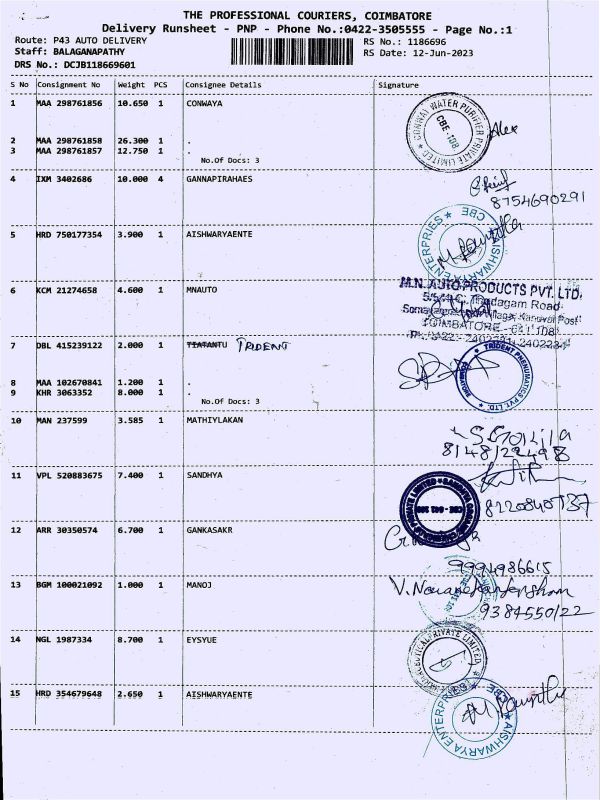 THE PROFESSIONAL COURIERS, COIMBATORE
Delivery Runsheet - PNP - Phone No.:0422-3505555 - Page No.:1
Route: P43 AUTO DELIVERY
Staff: BALAGANAPATHY
DRS No.: DCJB118669601
RS No.: 1186696
RS Date: 12-Jun-2023
S No Consignment No Weight PCS Consignee Details Signature
1 MAA 298761856 10.650 1 CONWAYA
CONWAY WATER PURIFIER PRIVATE LIMITED
CBE-108
Alex
2 MAA 298761858 26.300 1 .
3 MAA 298761857 12.750 1 .
No.Of Docs: 3
4 IXM 3402686 10.000 4 GANNAPIRAHAES
8754690291
5 HRD 750177354 3.900 1 AISHWARYAENTE
AISHWARYA ENTERPRIES CBE
6 KCM 21274658 4.600 1 MNAUTO
M.N. AUTO PRODUCTS PVT. LTD.
Thadagam Road
Kanuvai Post
COIMBATORE - 641 108
7 DBL 415239122 2.000 1 TIATANTU TRIDENT
TRIDENT PNEUMATICS PVT. LTD.
8 MAA 102670841 1.200 1 .
9 KHR 3063352 8.000 1 .
No.Of Docs: 3
10 MAN 237599 3.585 1 MATHIYLAKAN
11 VPL 520883675 7.400 1 SANDHYA
8220840737
12 ARR 30350574 6.700 1 GANKASAKR
9994986615
13 BGM 100021092 1.000 1 MANOJ
9384550122
14 NGL 1987334 8.700 1 EYSYUE
PRIVATE LIMITED
15 HRD 354679648 2.650 1 AISHWARYAENTE
AISHWARYA ENTERPRIES CBE